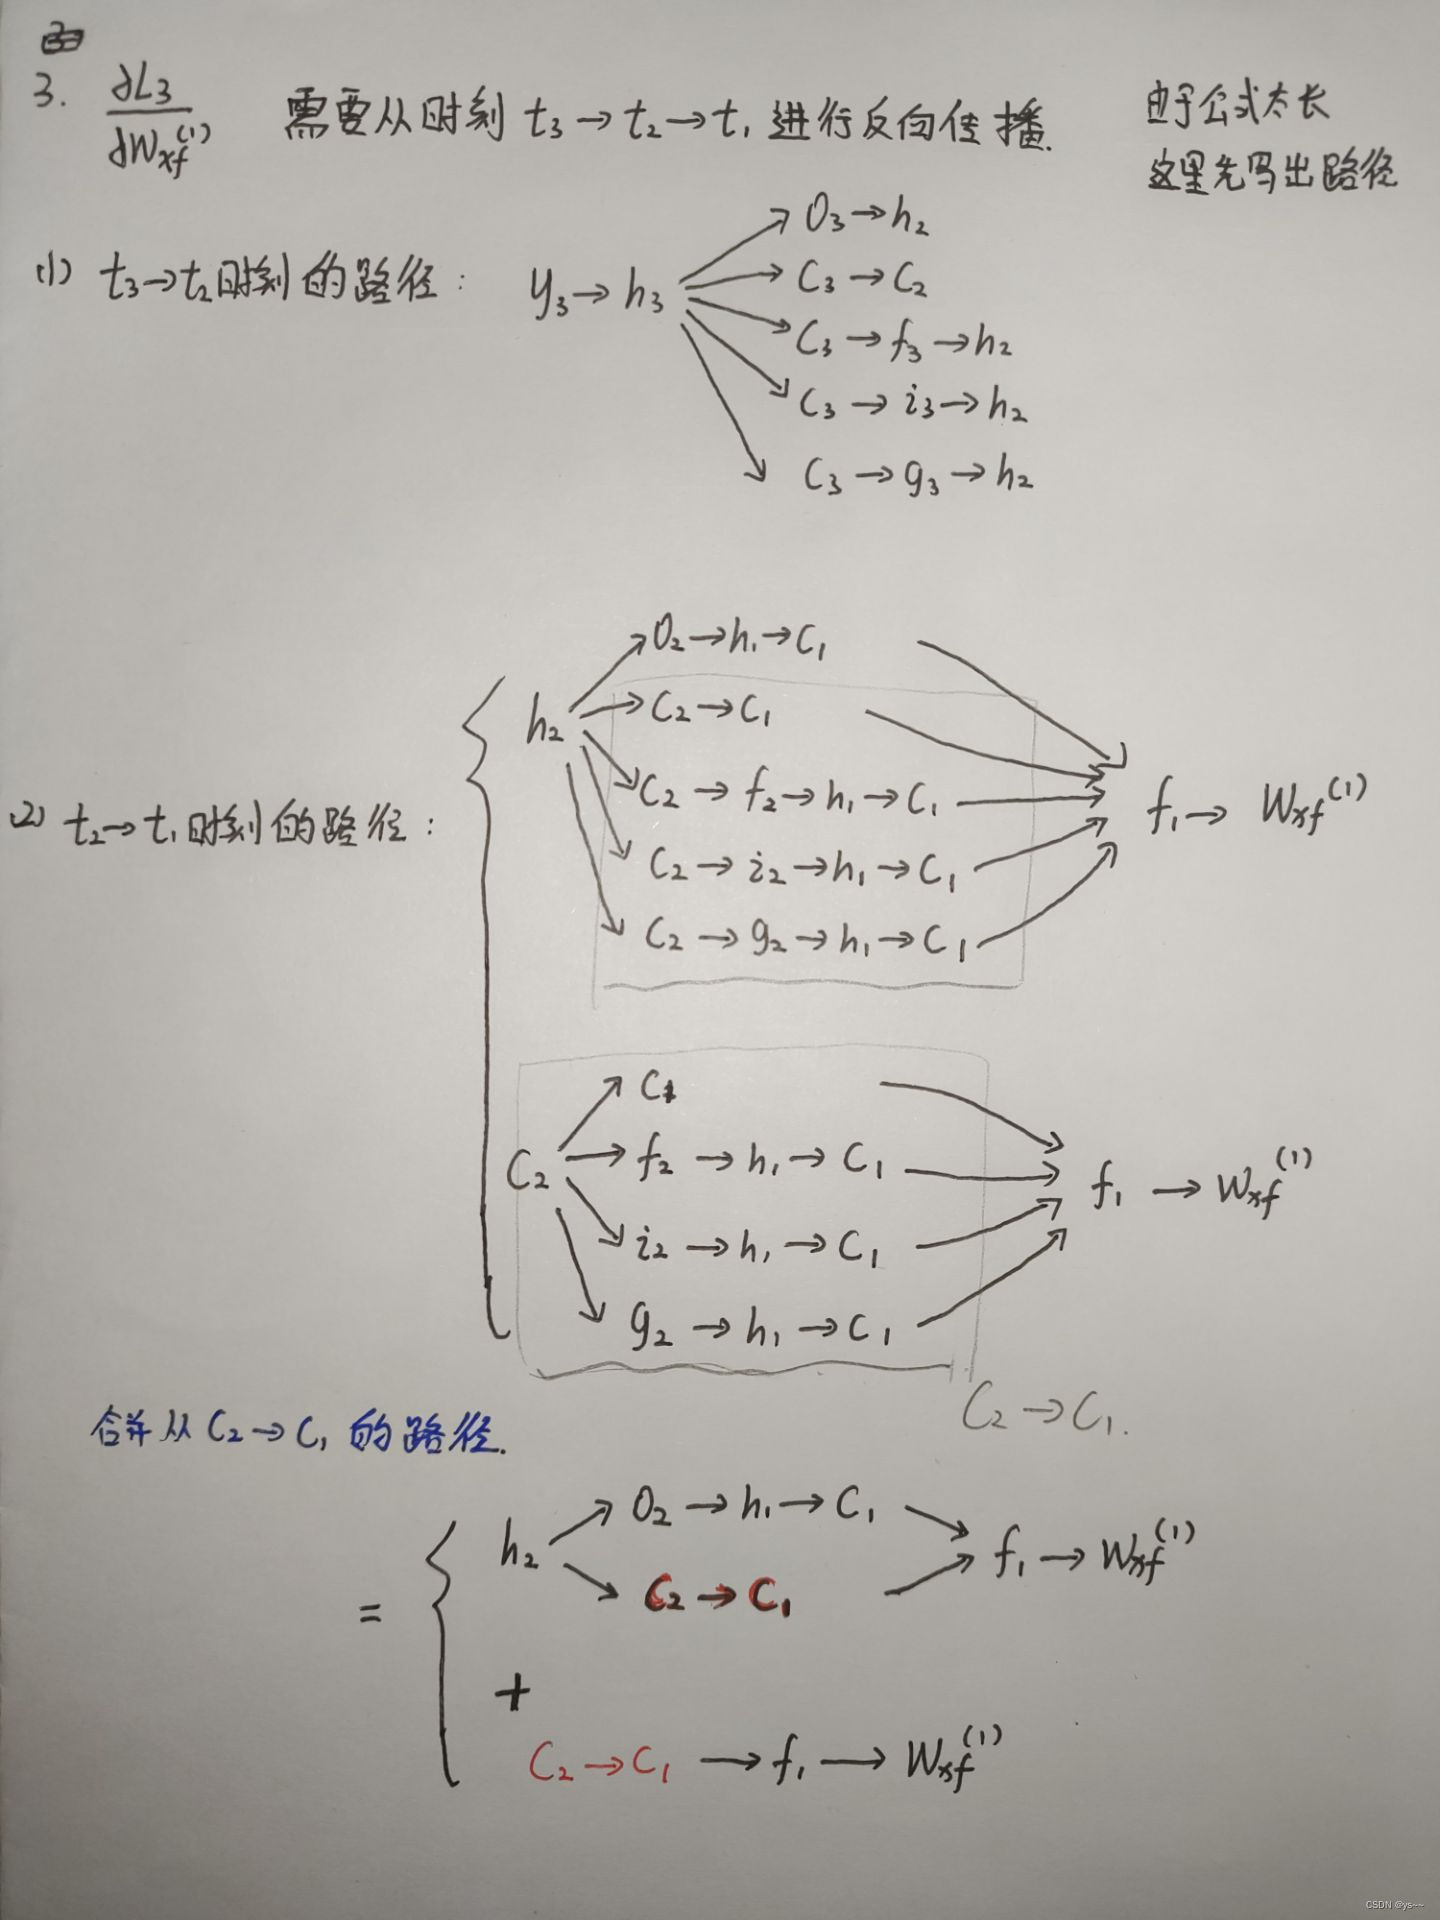 3. ∂L₃/∂Wxf⁽¹⁾ 需要从时刻 t₃→t₂→t₁ 进行反向传播.
由于公式太长
这里先写出路径
(1) t₃→t₂时刻的路径: y₃→h₃
O₃→h₂
C₃→C₂
C₃→f₃→h₂
C₃→i₃→h₂
C₃→g₃→h₂
(2) t₂→t₁时刻的路径:
h₂
O₂→h₁→C₁
C₂→C₁
C₂→f₂→h₁→C₁
C₂→i₂→h₁→C₁
C₂→g₂→h₁→C₁
f₁→Wxf⁽¹⁾
C₂
C₁
f₂→h₁→C₁
i₂→h₁→C₁
g₂→h₁→C₁
f₁→Wxf⁽¹⁾
C₂→C₁.
合并从C₂→C₁的路径.
=
h₂
O₂→h₁→C₁
C₂→C₁
f₁→Wxf⁽¹⁾
+
C₂→C₁→f₁→Wxf⁽¹⁾
CSDN @ys~~